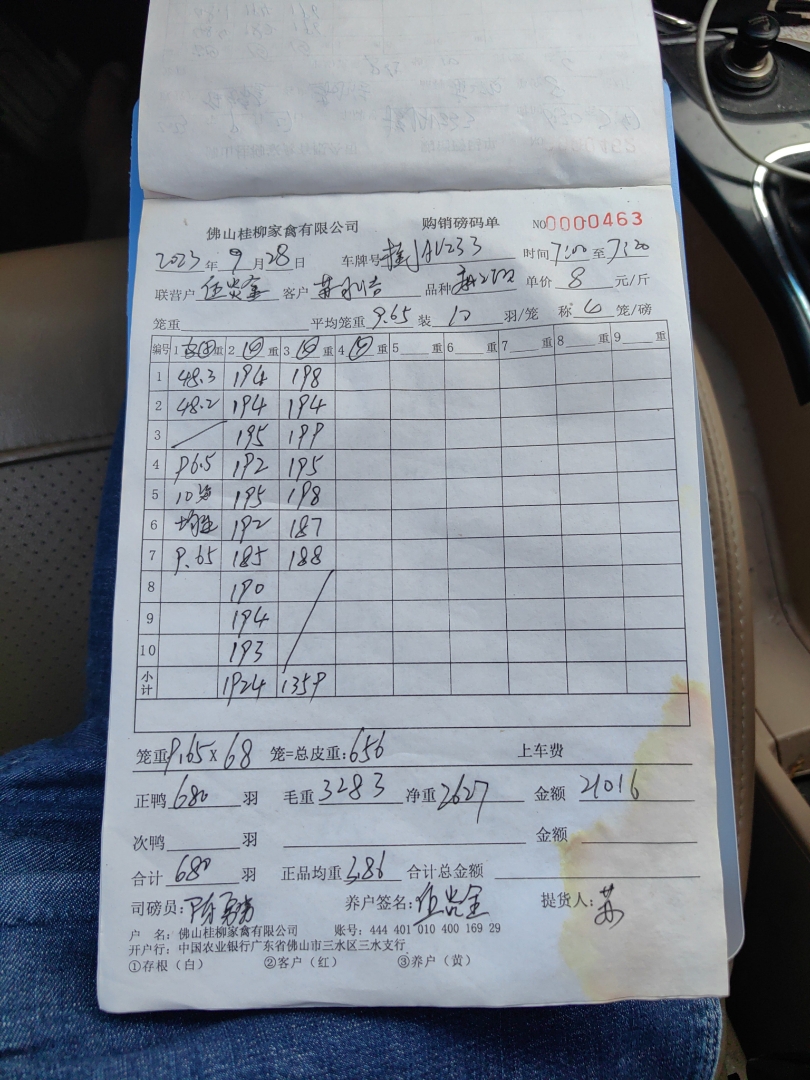 佛山桂柳家禽有限公司 购销磅码单 NO0000463
2023年9月28日 车牌号 桂JAV233 时间7:00至7:20
联营户 客户 品种 单价 8 元/斤
笼重 平均笼重 9.65 装 10 羽/笼 称 4 笼/磅
编号 1 重 2 ④ 重 3 ④ 重 4 ④ 重 5 重 6 重 7 重 8 重 9 重
1 48.3 194 198
2 48.2 194 194
3 195 199
4 96.5 192 195
5 10笼 195 198
6 均重 192 187
7 9.65 185 188
8 190
9 194
10 193
小计 1924 1359
笼重9.65×68 笼=总皮重:656 上车费
正鸭 680 羽 毛重 3283 净重 2627 金额 21016
次鸭 羽 金额
合计 680 羽 正品均重 3.86 合计总金额
司磅员: 养户签名: 提货人: 苏
户 名: 佛山桂柳家禽有限公司 账号: 444 401 010 400 169 29
开户行: 中国农业银行广东省佛山市三水区三水支行
①存根（白） ②客户（红） ③养户（黄）